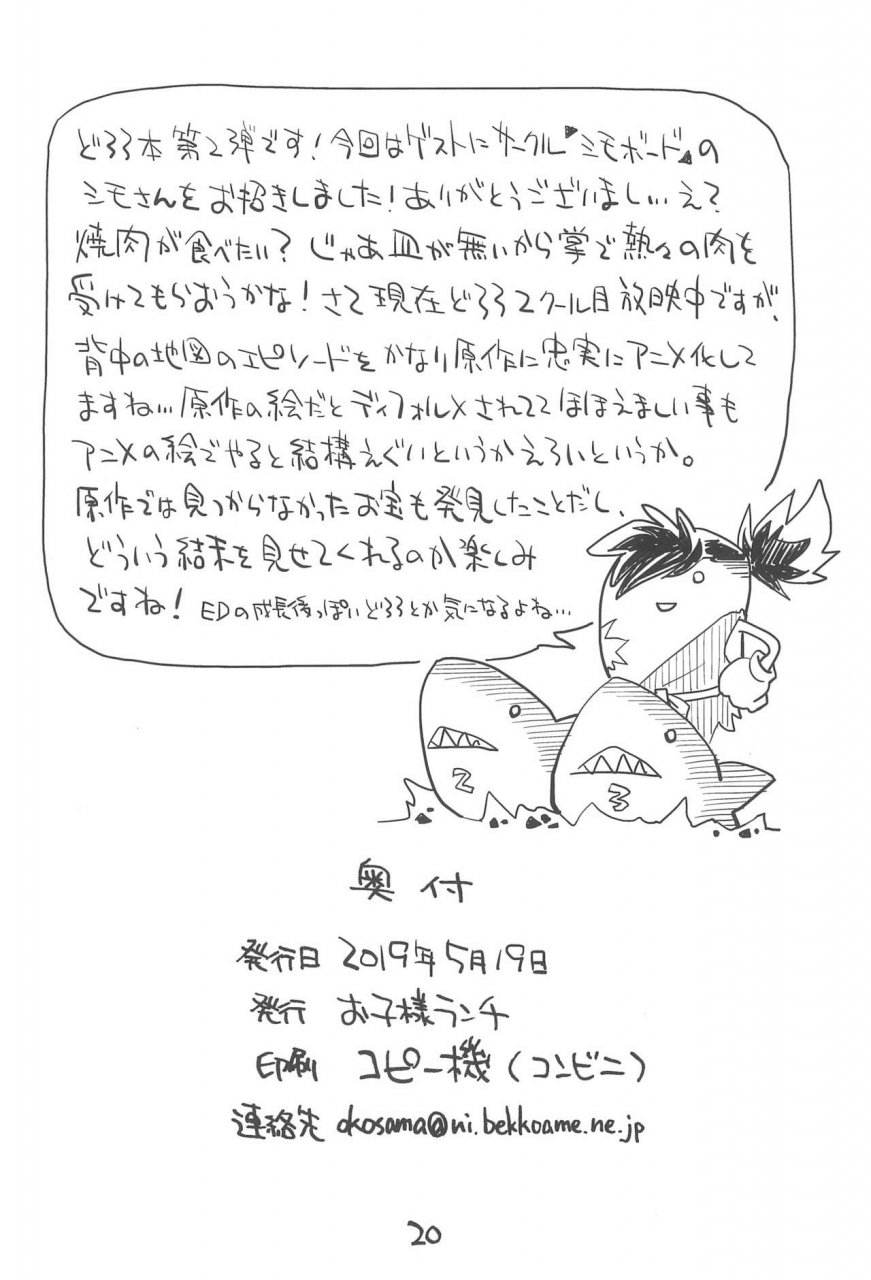 どろろ本第2弾です!今回はゲストにサークル『シモボード』の
シモさんをお招きしました!ありがとうございましい…え?
焼肉が食べたい?じゃあ皿が無いから掌で熱々の肉を
受けてもらおうかな!さて現在どろろ2クール目放映中ですが、
背中の地図のエピソードをかなり原作に忠実にアニメ化して
ますね…原作の絵だとディフォルメされててほほえましい事も
アニメの絵でやると結構えぐいというかえろいというか。
原作では見つからなかったお宝も発見したことだし、
どういう結末を見せてくれるのか楽しみ
ですね! EDの成長後っぽいどろろとか気になるよね…
2
3
奥付
発行日 2019年5月19日
発行 お子様ランチ
印刷 コピー機(コンビニ)
連絡先 okosama@ni.bekkoame.ne.jp
20